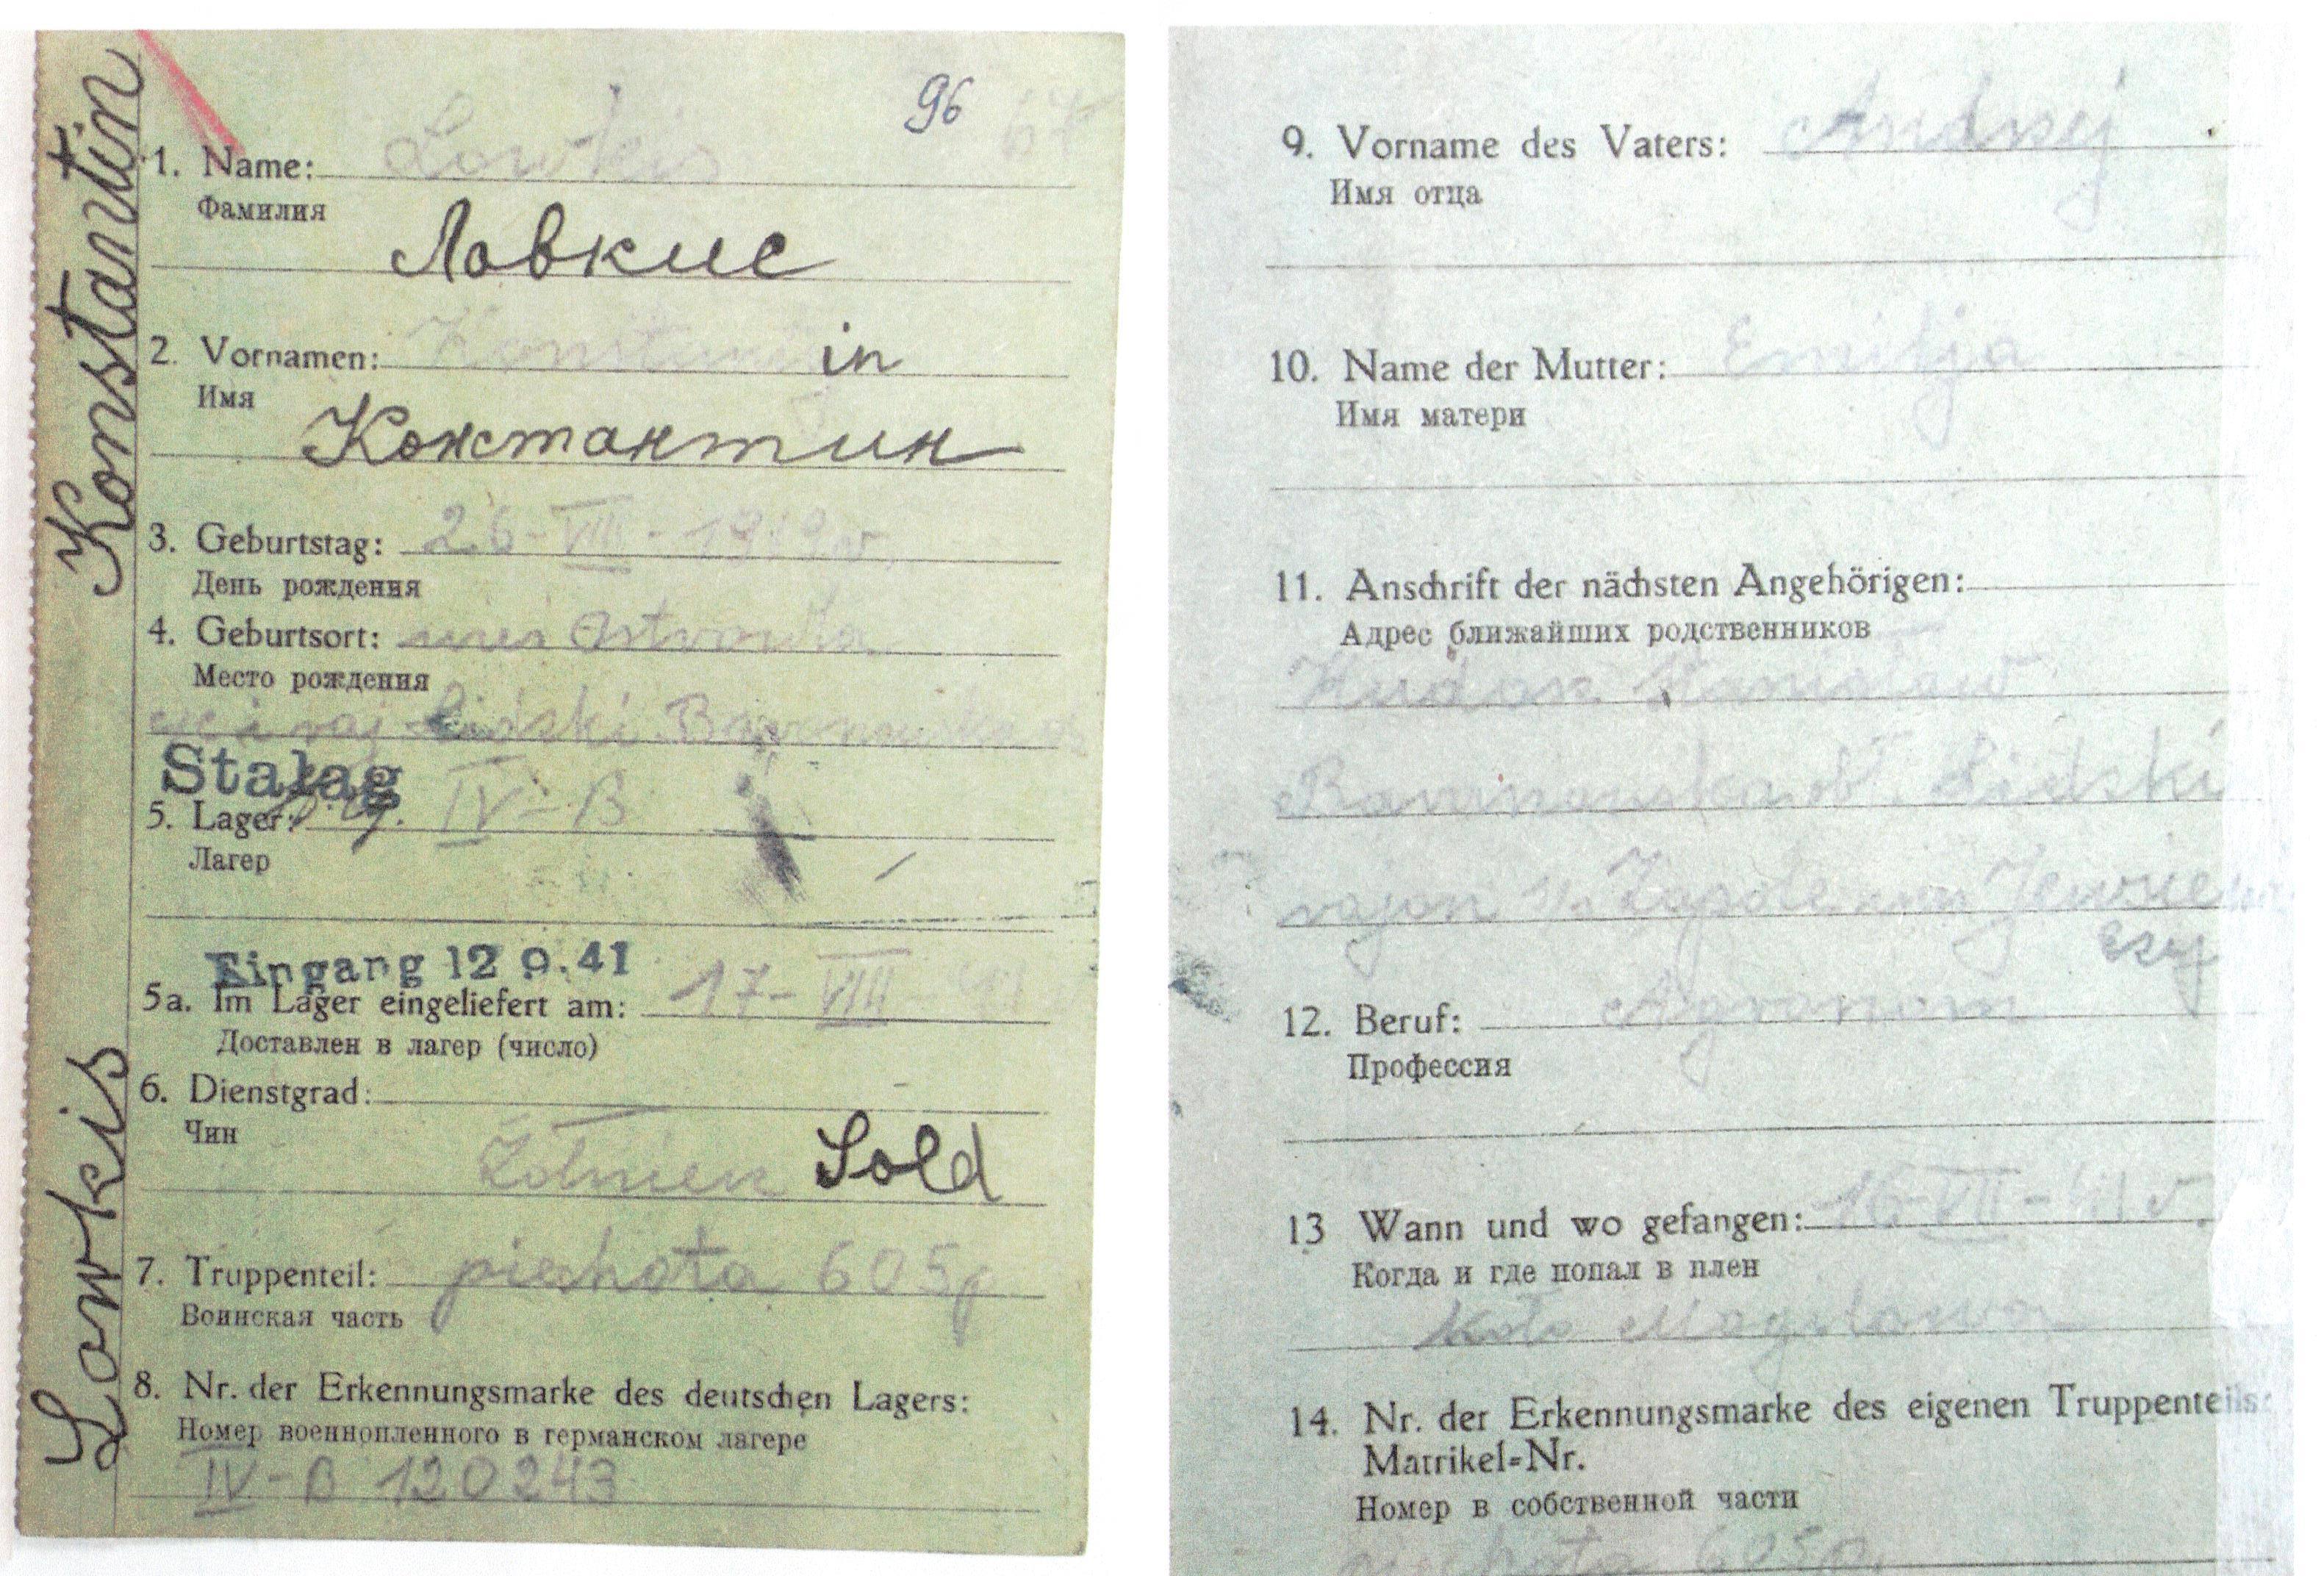 Konstantin
Lowkis
96 67
1. Name: Lowkis
Фамилия
Лавкис
2. Vornamen: Konstantin
Имя
Константин
3. Geburtstag: 26-VIII-1919r
День рождения
4. Geburtsort: Ostrowka
Место рождения
raj Lidski
Stalag
5. Lager: IV-B
Лагер
Eingang 12 9.41
5a. Im Lager eingeliefert am: 17-VIII 41
Доставлен в лагер (число)
6. Dienstgrad:
Чин
Żołnierz Sold
7. Truppenteil: piechota 605p
Воинская часть
8. Nr. der Erkennungsmarke des deutschen Lagers:
Номер военнопленного в германском лагере
IV-B 120243
9. Vorname des Vaters: Andrzej
Имя отца
10. Name der Mutter: Emilja
Имя матери
11. Anschrift der nächsten Angehörigen:
Адрес ближайших родственников
Stanisław
Lidski
rajon w. Zapole
12. Beruf: Agronom
Профессия
13 Wann und wo gefangen: 16-VII-41 r.
Когда и где попал в плен
koło Mogilowa
14. Nr. der Erkennungsmarke des eigenen Truppenteils:
Matrikel=Nr.
Номер в собственной части
piechota 605p